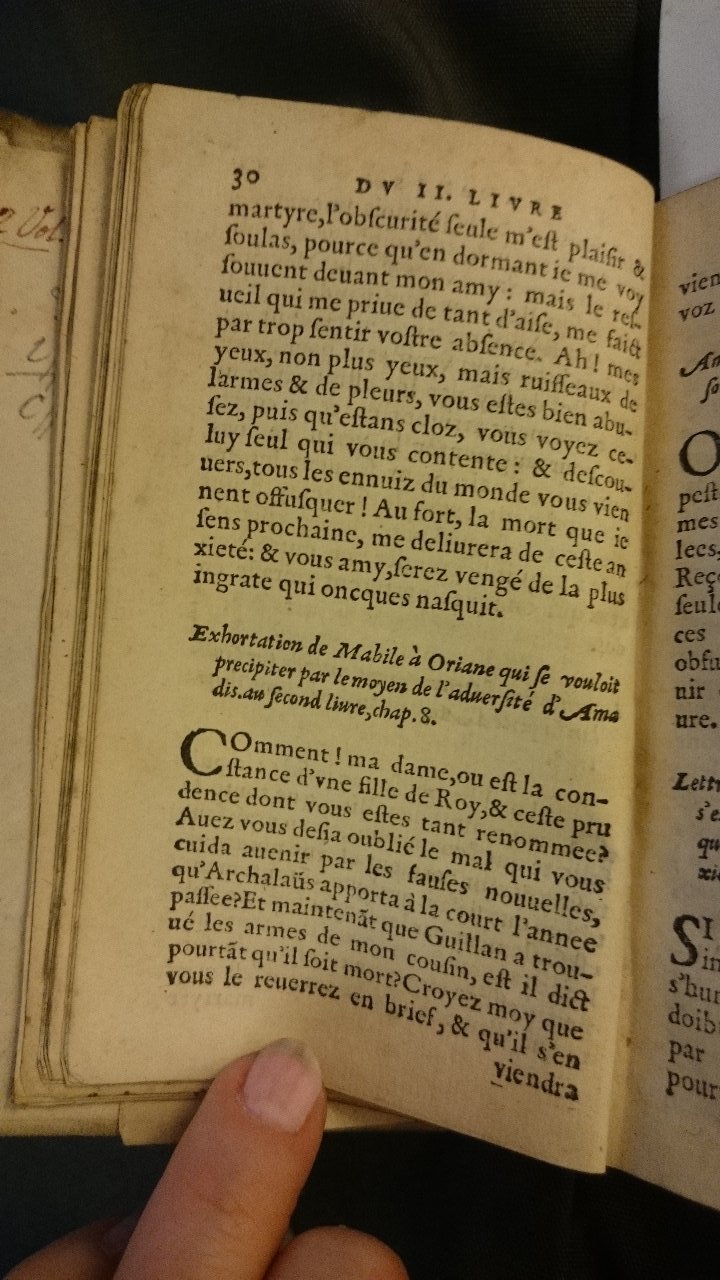 30 DV II. LIVRE
martyre,l'obſcurité ſeule m'eſt plaiſir &
ſoulas, pource qu'en dormant ie me voy
ſouuent deuant mon amy : mais le reſ-
ueil qui me priue de tant d'aiſe, me faict
par trop ſentir voſtre abſence. Ah! mes
yeux, non plus yeux, mais ruiſſeaux de
larmes & de pleurs, vous eſtes bien abu-
ſez, puis qu'eſtans cloz, vous voyez ce-
luy ſeul qui vous contente : & deſcou-
uers,tous les ennuiz du monde vous vien
nent offuſquer ! Au fort, la mort que ie
ſens prochaine, me deliurera de ceſte an
xieté: & vous amy,ſerez vengé de la plus
ingrate qui oncques naſquit.
Exhortation de Mabile à Oriane qui ſe vouloit
precipiter par le moyen de l'aduerſité d'Ama
dis.au ſecond liure,chap.8.
COmment ! ma dame,ou eſt la con-
ſtance d'vne fille de Roy,& ceſte pru
dence dont vous eſtes tant renommee?
Auez vous deſia oublié le mal qui vous
cuida auenir par les fauſes nouuelles,
qu'Archalaüs apporta à la court l'annee
paſſee?Et maintenãt que Guillan a trou-
ué les armes de mon couſin, eſt il dict
pourtãt qu'il ſoit mort?Croyez moy que
vous le reuerrez en brief, & qu'il s'en
viendra
2 Vol.
vien
voz
Am
ſo
O
peſt
mes
lees,
Reç
ſeul
ces
obfu
nir
ure.
Lettr
s'e
qu
xi
SI
ſin
s'hu
doib
par
pour